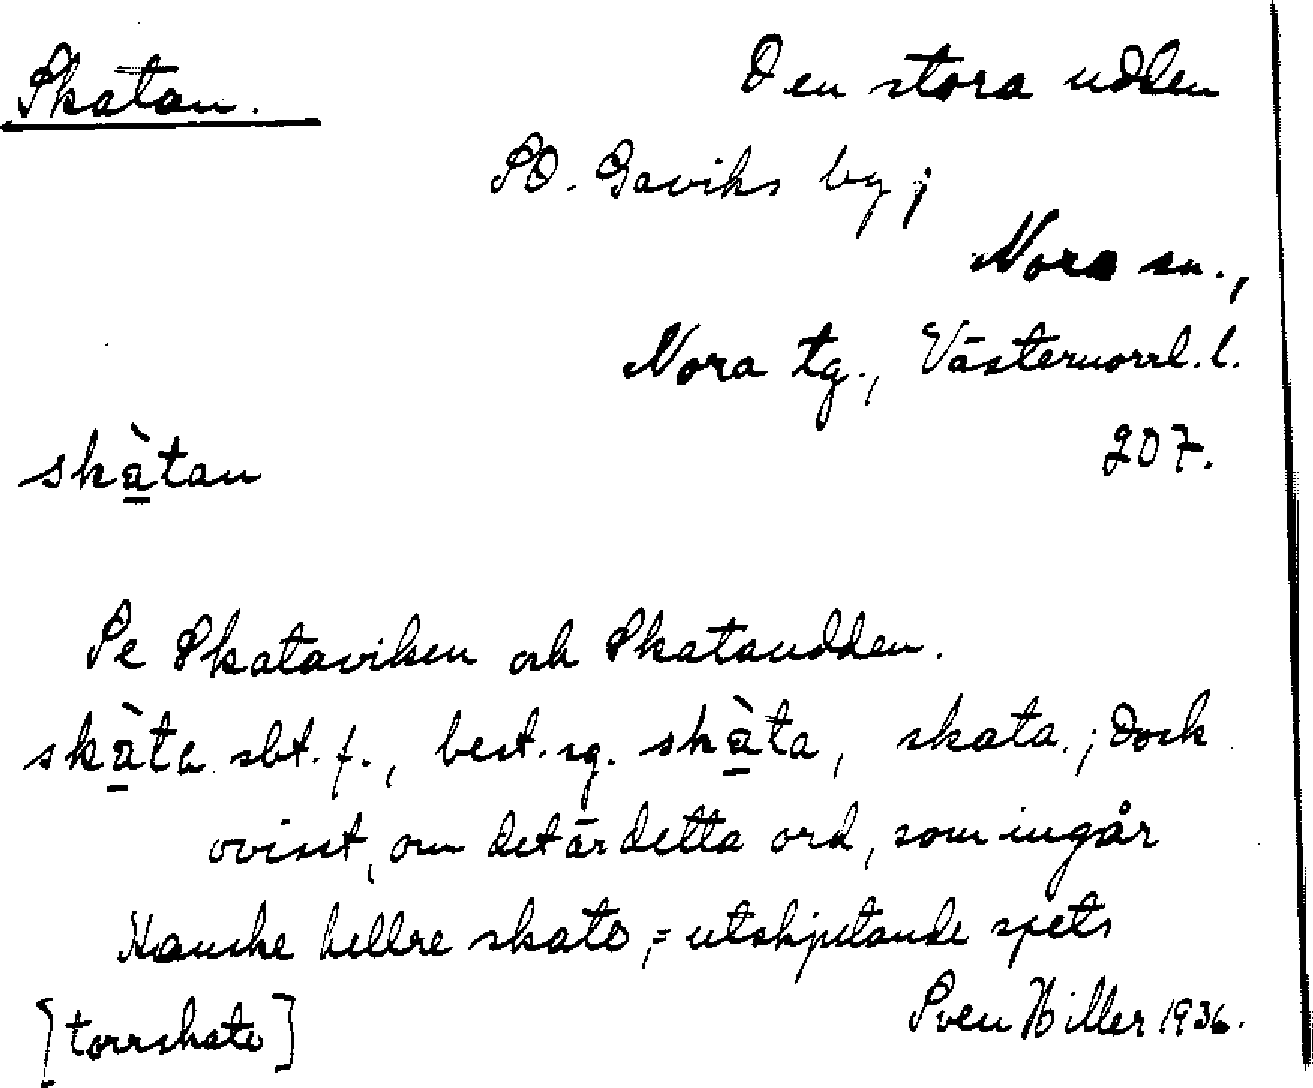 Skatan.
Den stora udden
SO. Gaviks by;
Nora sn.,
Nora tg., Västernorrl. l.
207.
skà̱tan
Se Skataviken och Skataudden.
skà̱ta sbt. f., best. sg. skà̱ta, skata.; dock
ovisst, om det är detta ord, som ingår
Kanske hellre skate, = utskjutande spets
[torrskate]
Sven Hiller 1936.